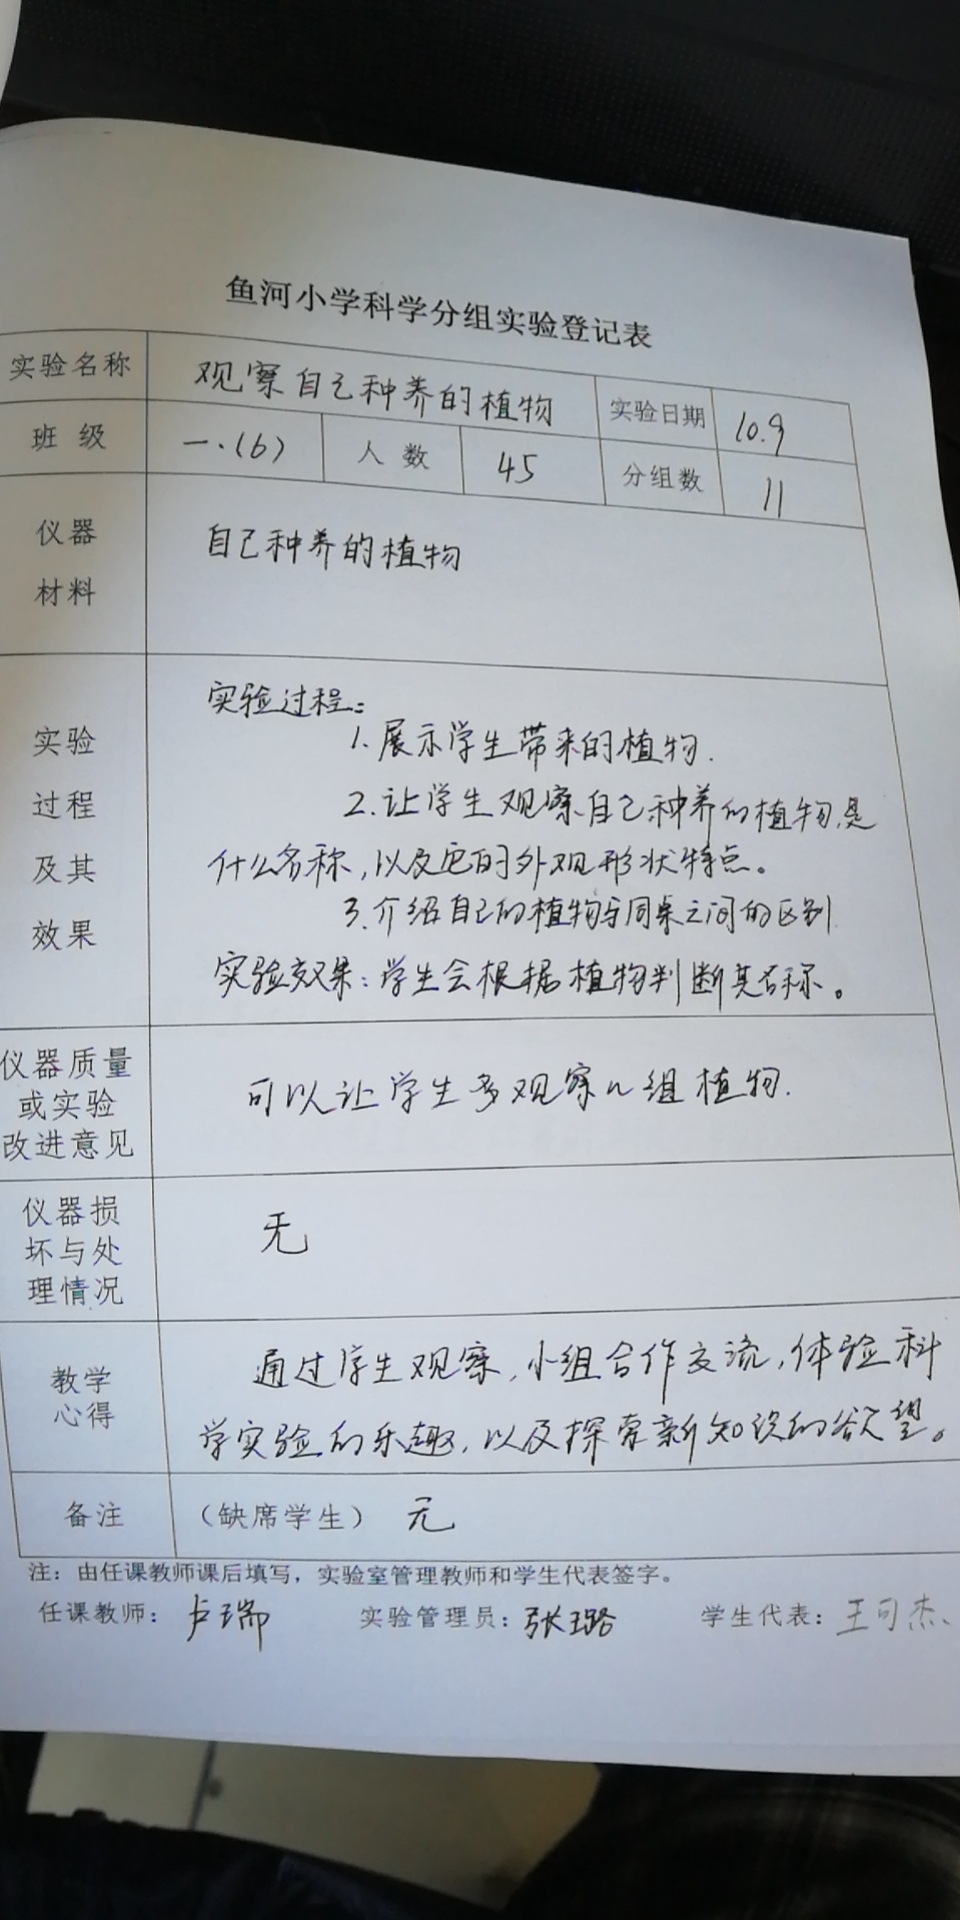 鱼河小学科学分组实验登记表
实验名称 观察自己种养的植物 实验日期 10.9
班 级 一.(6) 人 数 45 分组数 11
仪器
材料
自己种养的植物
实验
过程
及其
效果
实验过程:
1.展示学生带来的植物.
2.让学生观察自己种养的植物,是
什么名称,以及它的外观形状特点。
3.介绍自己的植物与同桌之间的区别.
实验效果:学生会根据植物判断其名称。
仪器质量
或实验
改进意见
可以让学生多观察几组植物.
仪器损
坏与处
理情况
无
教学
心得
通过学生观察,小组合作交流,体验科
学实验的乐趣,以及探索新知识的欲望。
备注 (缺席学生) 无
注:由任课教师课后填写,实验室管理教师和学生代表签字。
任课教师: 卢瑞 实验管理员: 张璐 学生代表: 王可杰